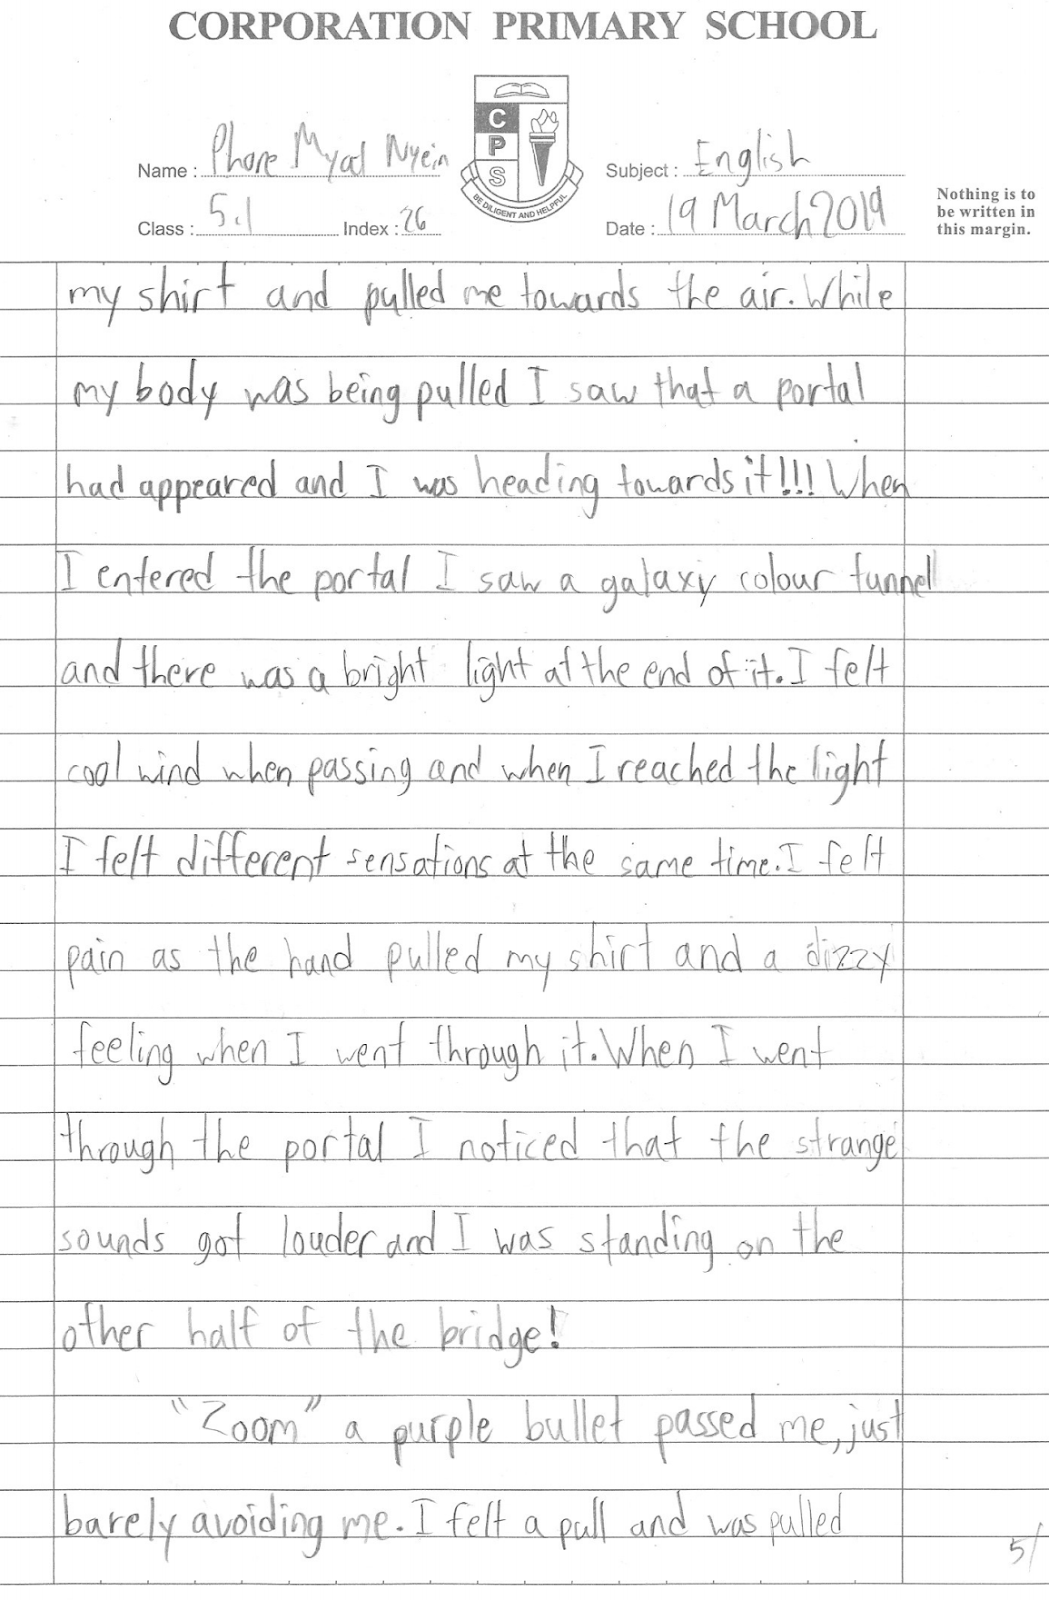 CORPORATION PRIMARY SCHOOL
C
P
S
BE DILIGENT AND HELPFUL
Name : Phone Myat Nyein
Subject : English
Class : 5.1 Index : 26
Date : 19 March 2019
Nothing is to
be written in
this margin.
my shirt and pulled me towards the air. While
my body was being pulled I saw that a portal
had appeared and I was heading towards it!!! When
I entered the portal I saw a galaxy colour tunnel
and there was a bright light at the end of it. I felt
cool wind when passing and when I reached the light
I felt different sensations at the same time. I felt
pain as the hand pulled my shirt and a dizzy
feeling when I went through it. When I went
through the portal I noticed that the strange
sounds got louder and I was standing on the
other half of the bridge!
"Zoom" a purple bullet passed me, just
barely avoiding me. I felt a pull and was pulled
5/